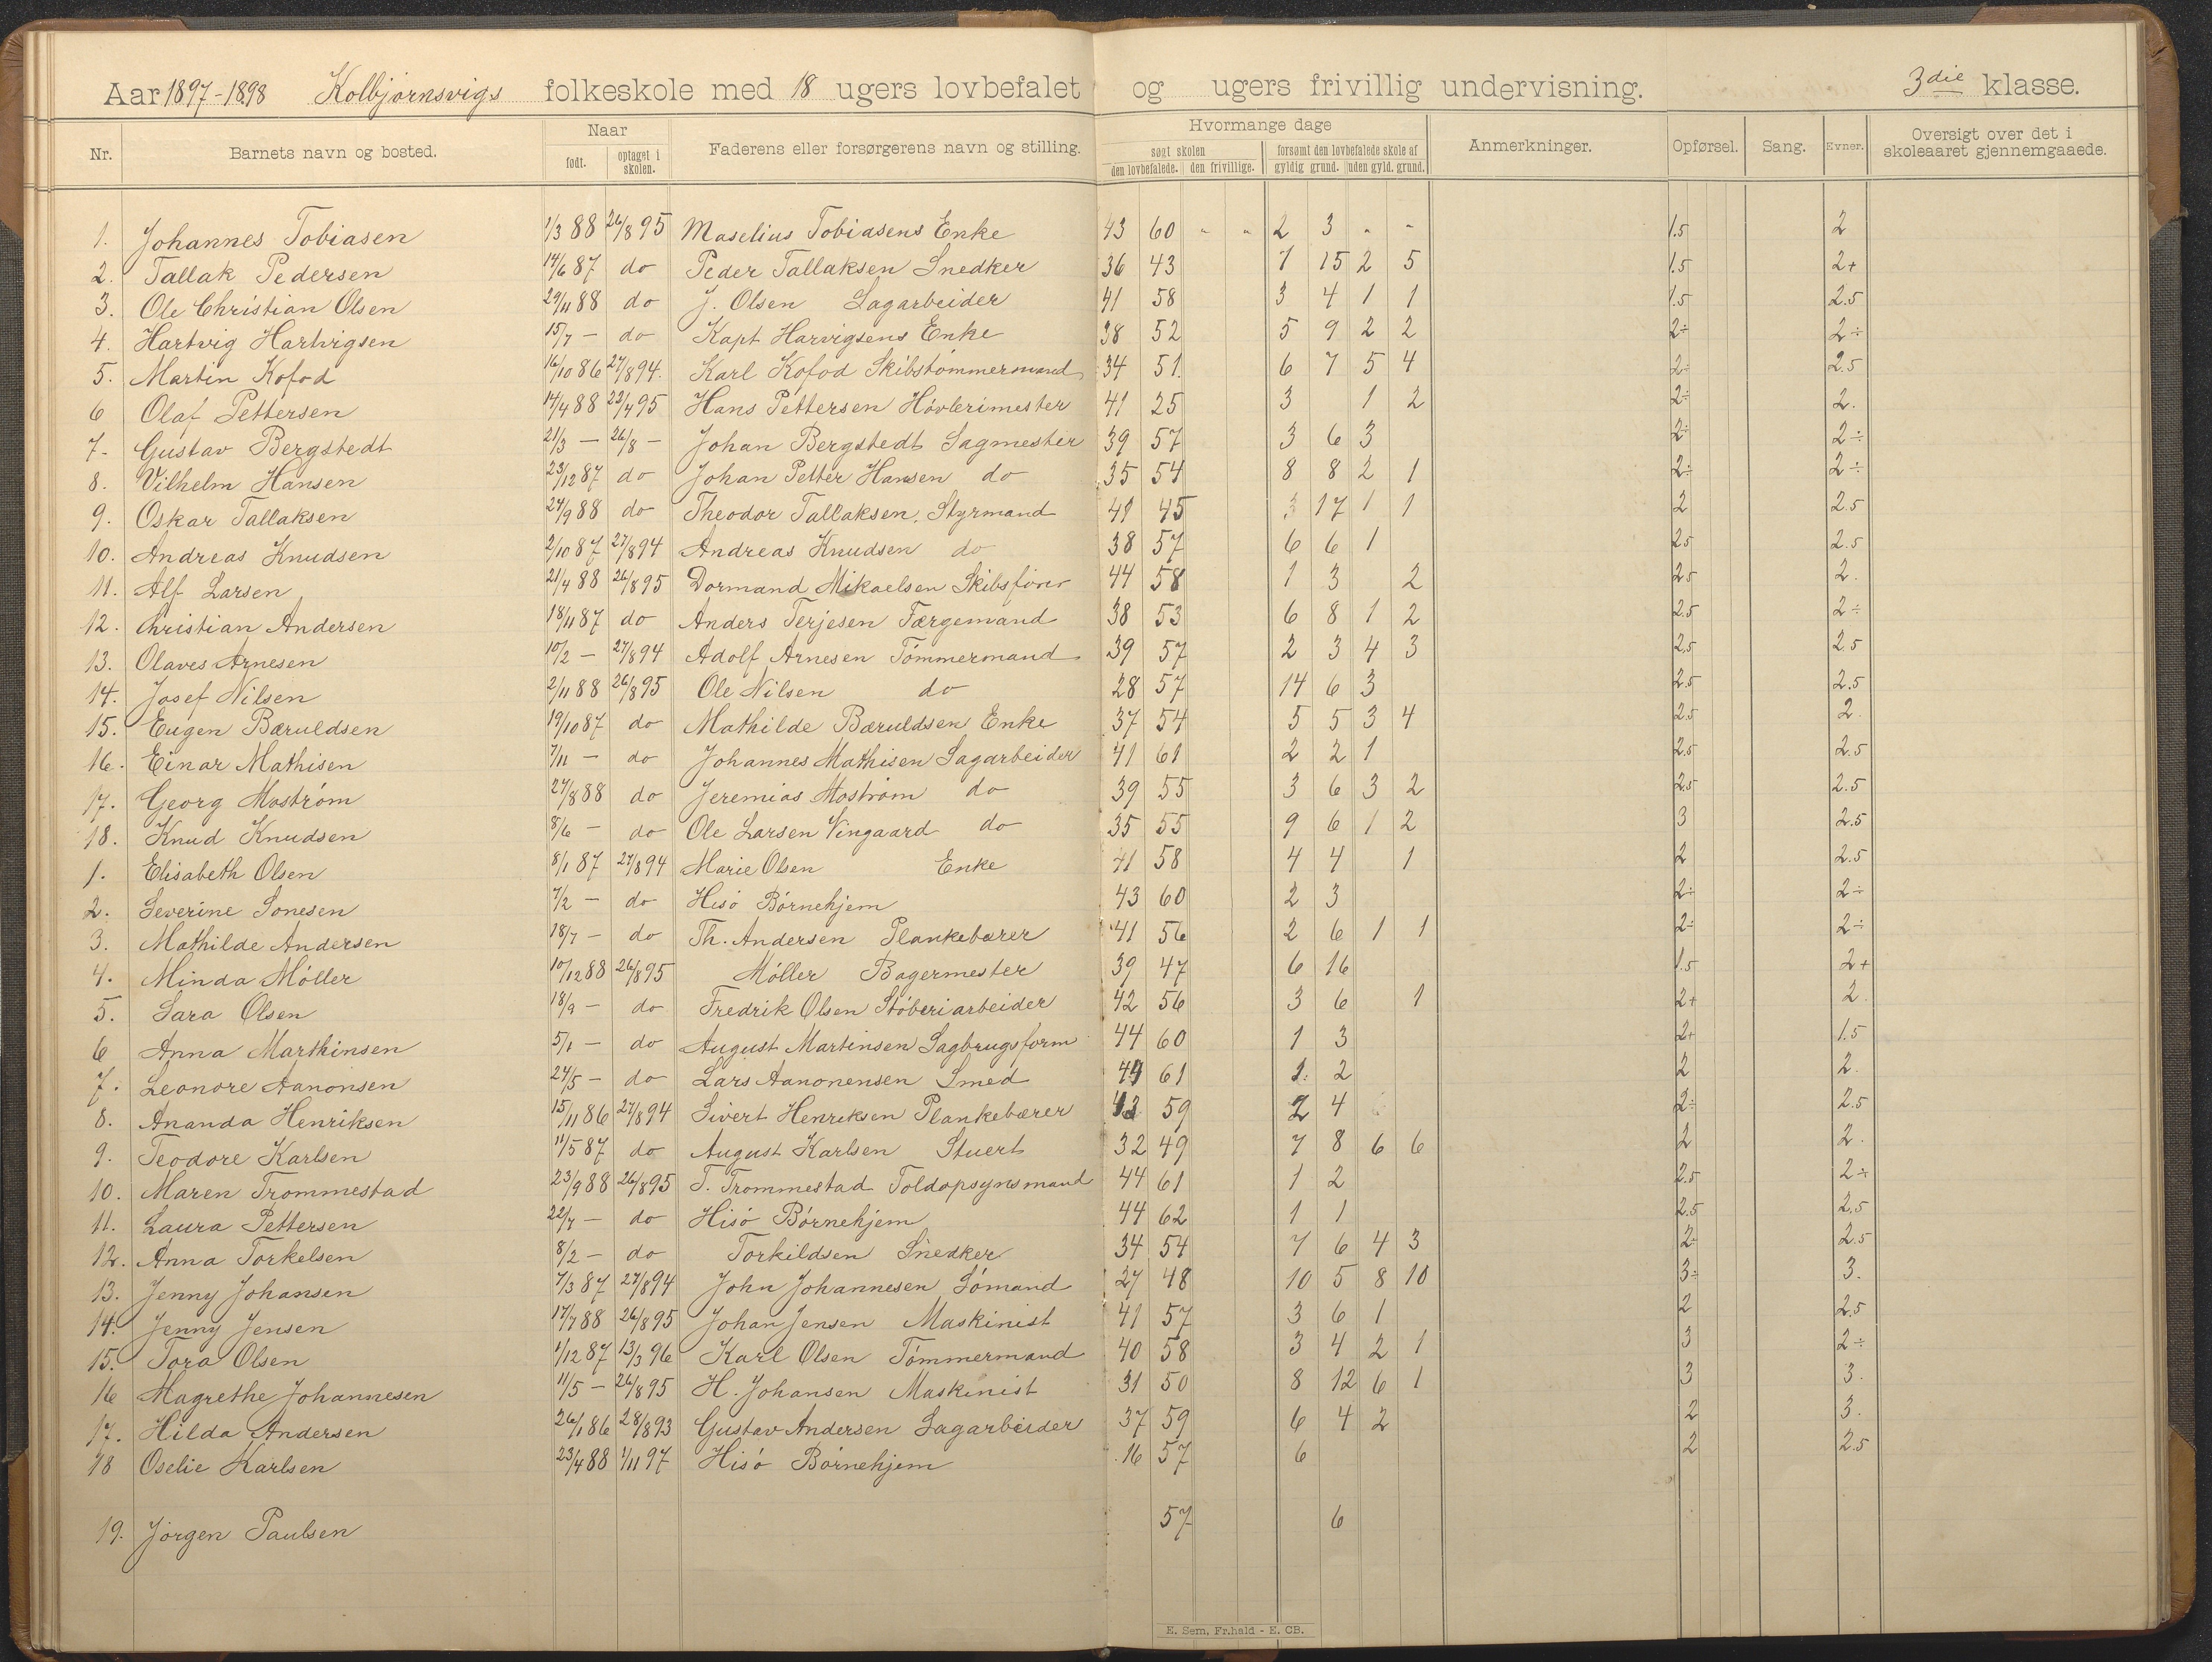 Aar 1897-1898 Kolbjørnsvigs folkeskole med 18 ugers lovbefalet og ugers frivillig undervisning. 3die klasse.
Nr. Barnets navn og bosted. Naar født. optaget i skolen. Faderens eller forsørgerens navn og stilling. Hvormange dage søgt skolen den lovbefalede. den frivillige. forsømt den lovbefalede skole af gyldig grund. uden gyld. grund. Anmerkninger. Opførsel. Sang. Evner. Oversigt over det i skoleaaret gjennemgaaede.
1. Johannes Tobiasen 1/3 88 26/8 95 Maselius Tobiasens Enke 43 60 " " 2 3 " " 1.5 2
2. Tallak Pedersen 14/6 87 do Peder Tallaksen Snedker 36 43 7 15 2 5 1.5 2+
3. Ole Christian Olsen 29/11 88 do J. Olsen Sagarbeider 41 58 3 4 1 1 1.5 2.5
4. Hartvig Hartvigsen 15/7 — do Kapt Harvigsens Enke 38 52 5 9 2 2 2÷ 2÷
5. Martin Kofod 16/10 86 27/8 94. Karl Kofod Skibstømmermand 34 51. 6 7 5 4 2÷ 2.5
6 Olaf Pettersen 14/4 88 22/4 95 Hans Pettersen Høvlerimester 41 25 3 1 2 2÷ 2.
7- Gustav Bergstedt 21/3 — 26/8 — Johan Bergstedt Sagmester 39 57 3 6 3 2÷ 2÷
8. Vilhelm Hansen 23/12 87 do Johan Petter Hansen do 35 54 8 8 2 1 2÷ 2÷
9. Oskar Tallaksen 24/9 88 do Theodor Tallaksen, Styrmand 41 45 3 17 1 1 2 2.5
10. Andreas Knudsen 2/10 87 27/8 94 Andreas Knudsen do 38 57 6 6 1 2.5 2.5
11. Alf Larsen 21/4 88 26/8 95 Dormand Mikaelsen Skibsfører 44 58 1 3 2 2.5 2.
12. Christian Andersen 18/11 87 do Anders Terjesen Færgemand 38 53 6 8 1 2 2.5 2÷
13. Olaves Arnesen 10/2 — 27/8 94 Adolf Arnesen Tømmermand 39 57 2 3 4 3 2.5 2.5
14. Josef Nilsen 2/11 88 26/8 95 Ole Nilsen do 28 57 14 6 3 2.5 2.5
15. Eugen Bæruldsen 19/10 87 do Mathilde Bæruldsen Enke 37 54 5 5 3 4 2.5 2.
16. Einar Mathisen 7/11 — do Johannes Mathisen Sagarbeider 41 61 2 2 1 2.5 2.5
17. Georg Mostrøm 27/8 88 do Jeremias Mostrøm do 39 55 3 6 3 2 2.5 2.5
18. Knud Knudsen 8/6 — do Ole Larsen Vingaard do 35 55 9 6 1 2 3 2.5
1. Elisabeth Olsen 8/1 87 27/8 94 Marie Olsen Enke 41 58 4 4 1 2 2.5
2. Severine Sonesen 7/2 — do Hisø Børnehjem 43 60 2 3 2÷ 2÷
3. Mathilde Andersen 18/7 — do Th. Andersen Plankebærer 41 56 2 6 1 1 2÷ 2÷
4. Minda Møller 10/12 88 26/8 95 Møller Bagermester 39 47 6 16 1.5 2+
5. Sara Olsen 18/9 — do Fredrik Olsen Støberiarbeider 42 56 3 6 1 2+ 2.
6 Anna Marthinsen 5/1 — do August Martinsen Sagbrugsform 44 60 1 3 2+ 1.5
7. Leonore Aanonsen 24/5 — do Lars Aanonensen Smed 44 61 1. 2 2 2.
8. Ananda Henriksen 15/11 86 27/8 94 Sivert Henriksen Plankebærer 43 59 2 4 2÷ 2.5
9. Teodore Karlsen 11/5 87 do August Karlsen Stuert 32 49 7 8 6 6 2 2.
10. Maren Trommestad 23/9 88 26/8 95 T. Trommestad Toldopsynsmand 44 61 1 2 2.5 2÷
11. Laura Pettersen 22/7 — do Hisø Børnehjem 44 62 1 1 2.5 2.5
12. Anna Torkelsen 8/2 — do Torkildsen Snedker 34 54 7 6 4 3 2÷ 2.5
13. Jenny Johansen 7/3 87 27/8 94 John Johannesen Sømand 27 48 10 5 8 10 3÷ 3.
14. Jenny Jensen 17/7 88 26/8 95 Johan Jensen Maskinist 41 57 3 6 1 2 2.5
15. Tora Olsen 1/12 87 13/3 96 Karl Olsen Tømmermand 40 58 3 4 2 1 3 2÷
16 Magrethe Johannesen 11/5 — 26/8 95 H. Johansen Maskinist 31 50 8 12 6 1 3 3.
17. Hilda Andersen 26/1 86 28/8 93 Gustav Andersen Sagarbeider 37 59 6 4 2 2 3.
18 Oselie Karlsen 23/4 88 1/11 97 Hisø Børnehjem 16 57 6 2 2.5
19. Jørgen Paulsen 57 6
E. Sem, Fr.hald - E. CB.